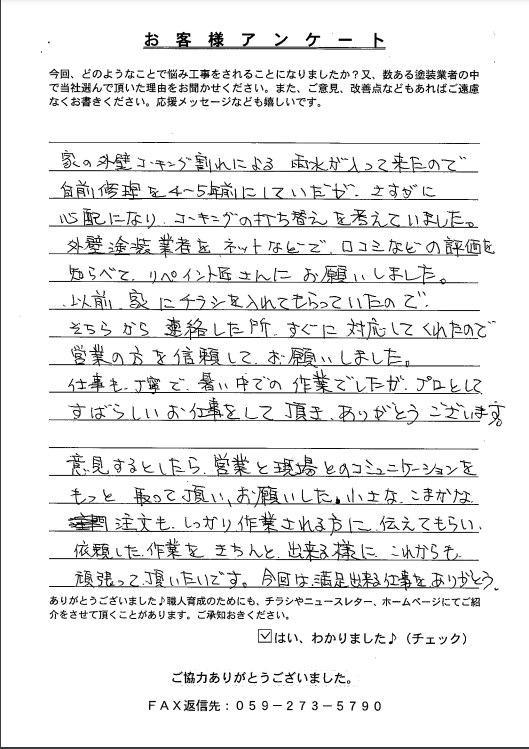 お客様アンケート
今回、どのようなことで悩み工事をされることになりましたか?又、数ある塗装業者の中
で当社選んで頂いた理由をお聞かせください。また、ご意見、改善点などもあればご遠慮
なくお書きください。応援メッセージなども嬉しいです。
家の外壁コーキング割れによる 雨水が入って来たので
自前修理を4~5年前にしていたが、さすがに
心配になり、コーキングの打ち替えを考えていました。
外壁塗装業者をネットなどで、口コミなどの評価を
知らべて、リペイント匠さんにお願いしました。
以前、家にチラシを入れてもらっていたので、
そちらから連絡した所、すぐに対応してくれたので
営業の方を信頼して、お願いしました。
仕事も、丁寧で、暑い中での作業でしたが、プロとして
すばらしいお仕事をして頂き、ありがとうございます。
意見するとしたら、営業と現場とのコミュニケーションを
もっと取って頂い、お願いした、小さな、こまかな
注文も、しっかり作業される方に、伝えてもらい、
依頼した作業をきちんと、出来る様に これからも、
頑張って頂いたいです。今回は、満足出来る仕事をありがとう。
ありがとうございました♪職人育成のためにも、チラシやニュースレター、ホームページにてご紹
介をさせて頂くことがあります。ご承知おきください。
☑はい、わかりました♪(チェック)
ご協力ありがとうございました。
FAX返信先:059-273-5790